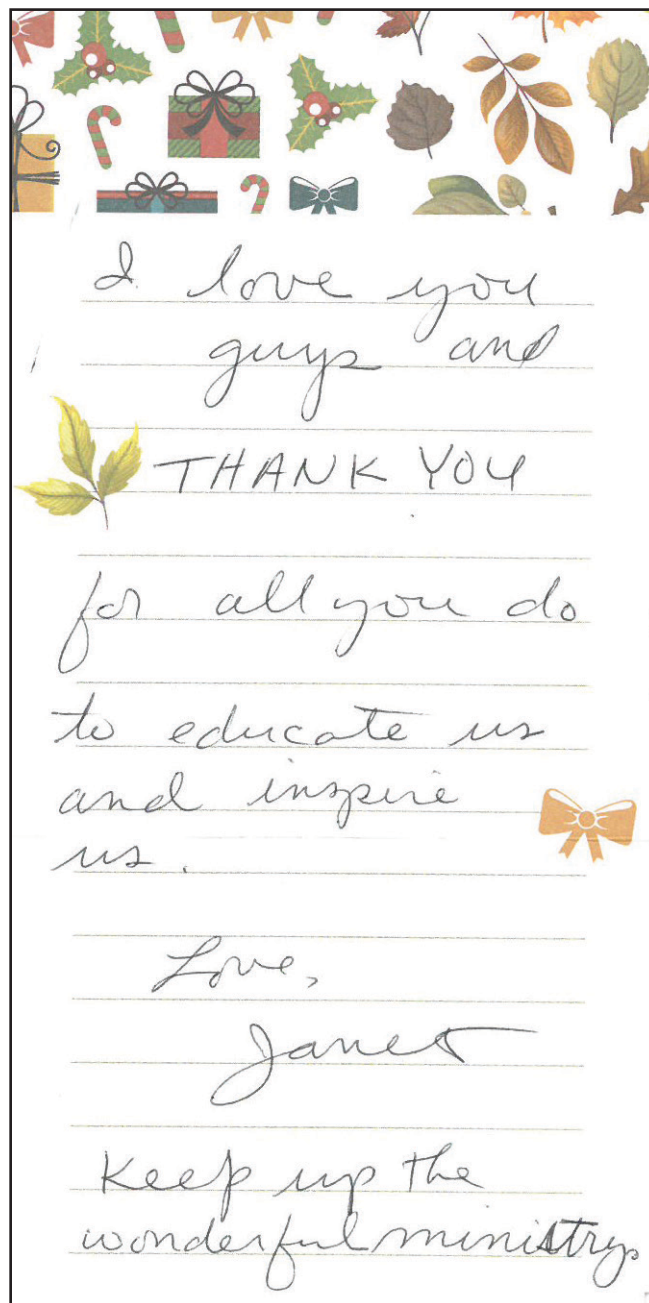 I love you
guys and
THANK YOU
for all you do
to educate us
and inspire
us.
Love,
Janet
Keep up the
wonderful ministry.